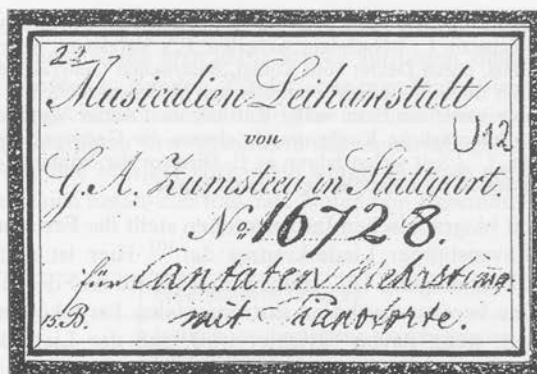 Musicalien-Leihanstalt
von
G. A. Zumsteeg in Stuttgart.
No. 16728.
für Cantaten Mehrstimmg.
mit Pianoforte.